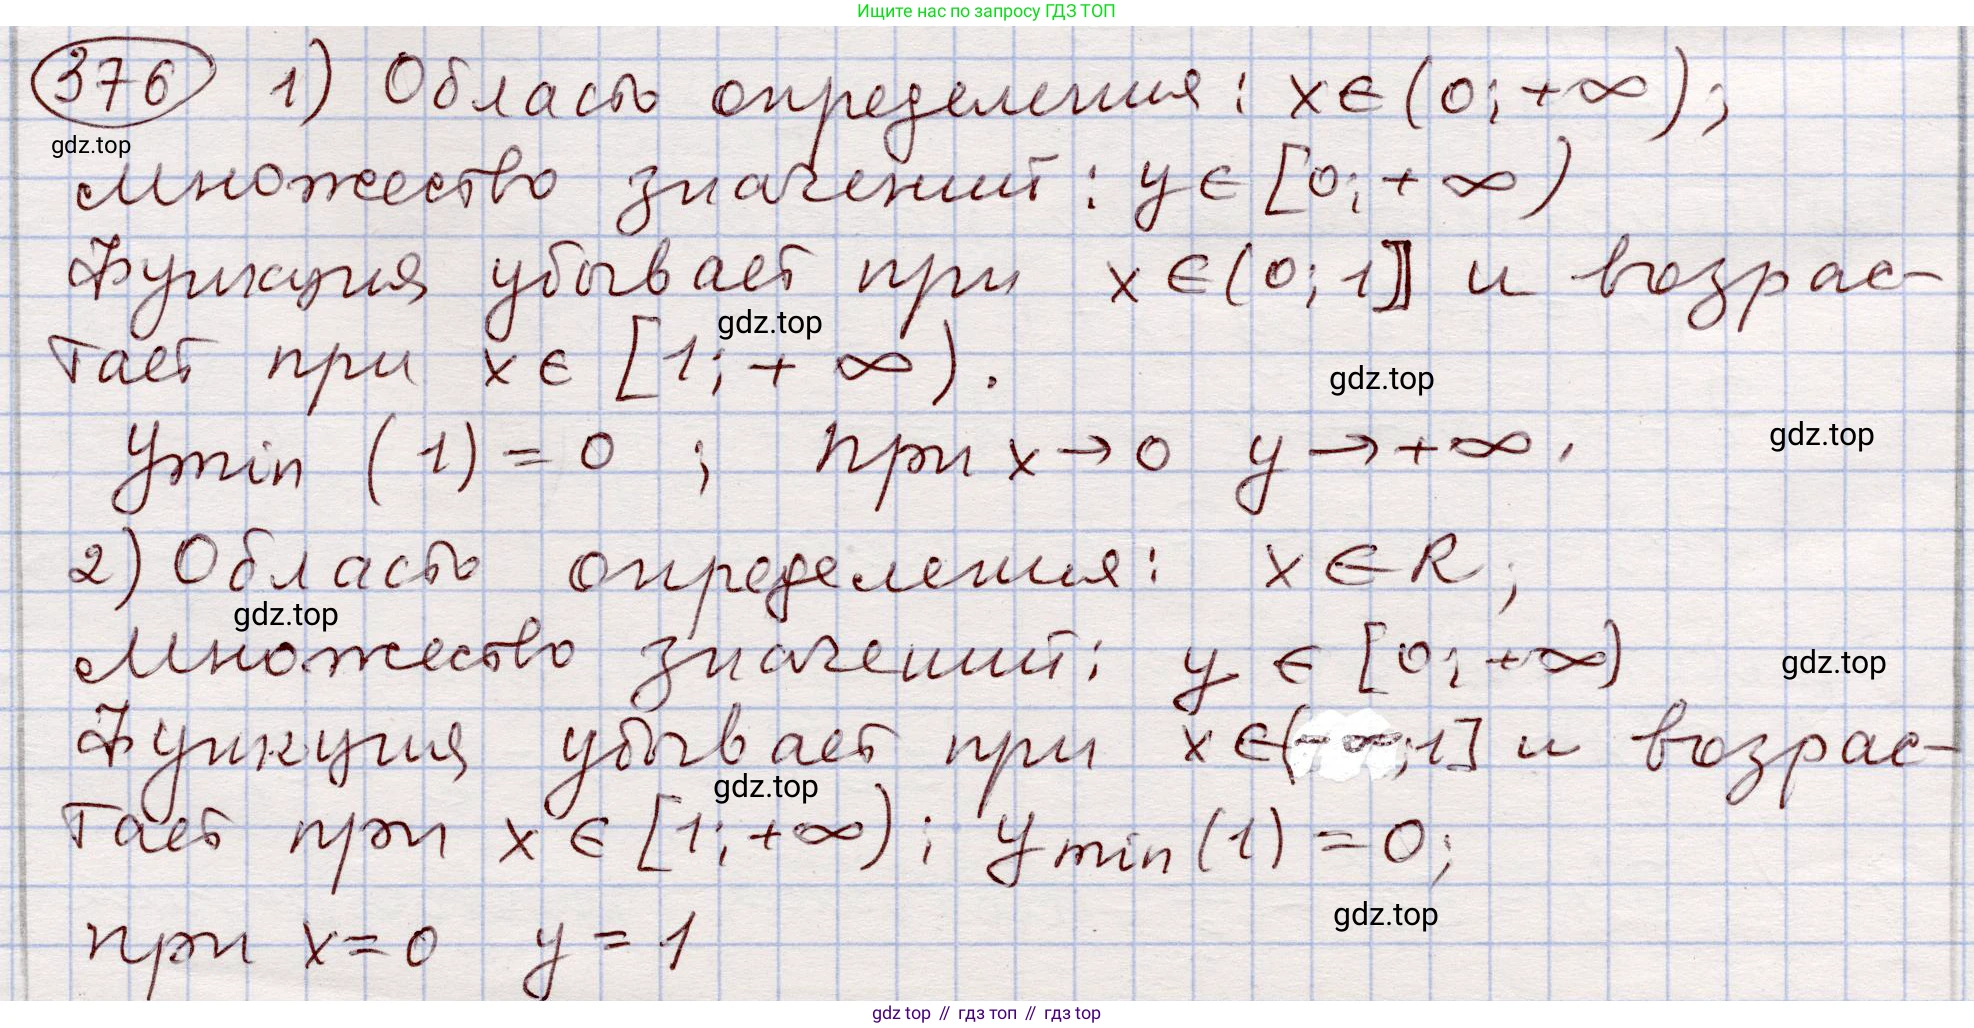 Ищите нас по запросу ГДЗ ТОП
376 1) Область определения: x∈(0;+∞);
gdz.top
множество значений: y∈[0;+∞)
Функция убывает при x∈(0;1] и возрас-
gdz.top
тает при x∈[1;+∞).
gdz.top
gdz.top
ymin (1)=0 ; при x→0 y→+∞.
2) Область определения: x∈R;
gdz.top
множество значений: y∈[0;+∞)
gdz.top
Функция убывает при x∈(-∞;1] и возрас-
gdz.top
тает при x∈[1;+∞); ymin(1)=0;
gdz.top
при x=0 y=1
gdz top // гдз топ // гдз top